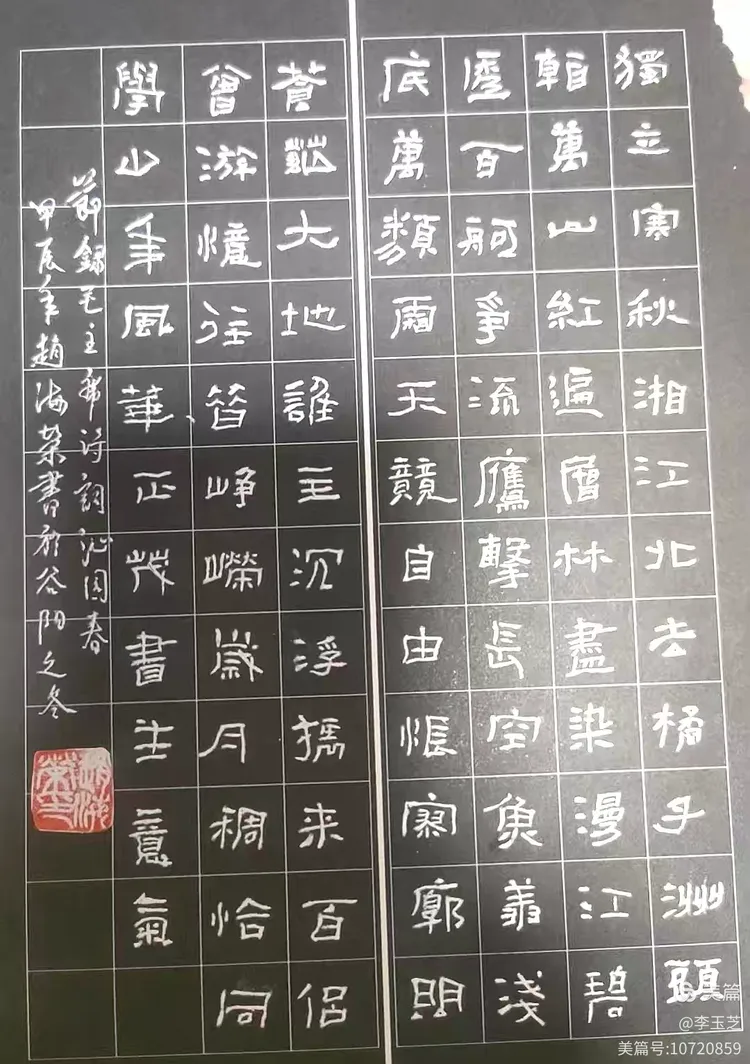 獨立寒秋湘江北去橘子洲頭
看萬山紅遍層林盡染漫江碧
透百舸爭流鷹擊長空魚翔淺
底萬類霜天競自由悵寥廓問
蒼茫大地誰主沉浮攜来百侶
曾游憶往昔崢嶸歲月稠恰同
學少年風華正茂書生意氣
節錄毛主席詩詞沁园春
甲辰年趙海榮書於谷阳之冬
美篇
@李玉芝
美篇号:10720859